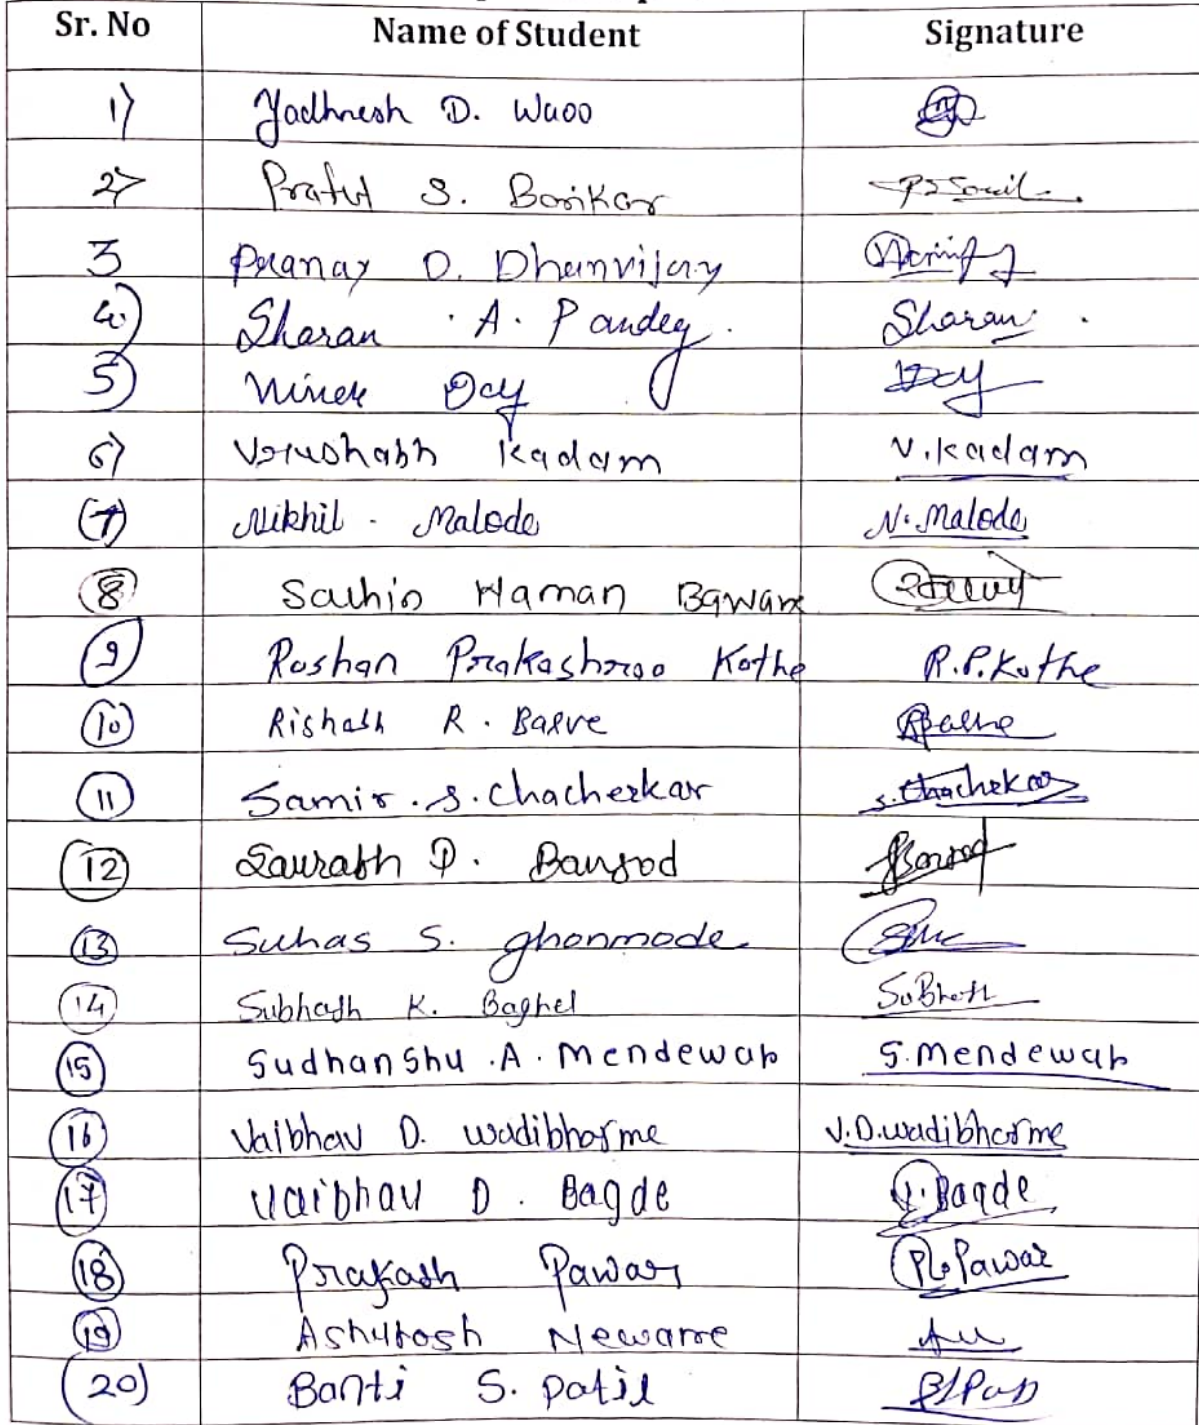 Sr. No Name of Student Signature
1) Yadhnesh D. Waoo
2) Praful S. Borikar
3 Pranay D. Dhanvijay
4.) Sharan . A. Pandey. Sharan.
5) Day Day
6) Vrushabh Kadam V. Kadam
(7) Nikhil . Malode N. Malode
(8) Sachin Haman Bawane
(9) Roshan Prakashrao Kothe R.P. Kothe
(10) Rishabh R. Barve
(11) Samir . S. Chacherkar S. Chachekar
(12) Saurabh D. Bansod
(13) Suhas S. ghonmode
(14) Subhash K. Baghel Subhash
(15) Sudhanshu .A. Mendewar S. Mendewar
(16) Vaibhav D. wadibhasme V.D. wadibhasme
(17) Vaibhav D. Bagde V. Bagde
(18) Prakash Pawar P. Pawar
(19) Ashutosh Neware
(20) Banti S. patil